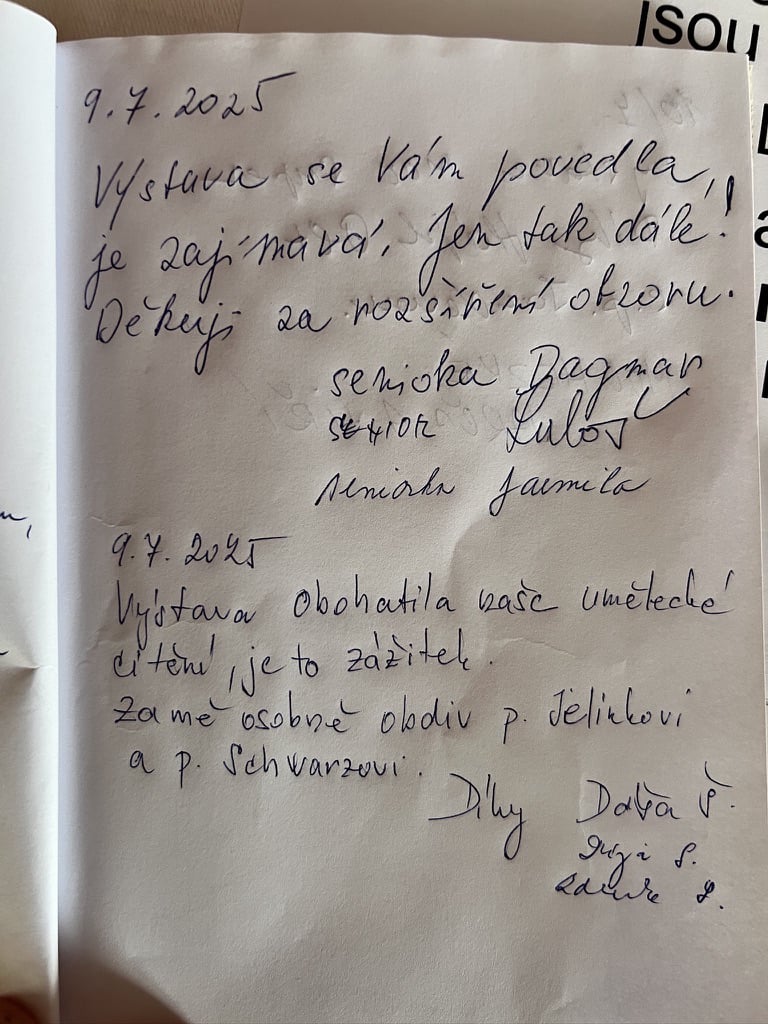 jsou
9.7.2025
Výstava se Vám povedla,
je zajímavá. Jen tak dále!
Děkuji za rozšíření obzoru.
seniorka Dagmar
senior Luboš
seniorka Jarmila
9.7.2025
Výstava obohatila naše umělecké
cítění, je to zážitek.
Za mě osobně obdiv p. Jelínkovi
a p. Schwarzovi.
Díky Dáša Š.
S.